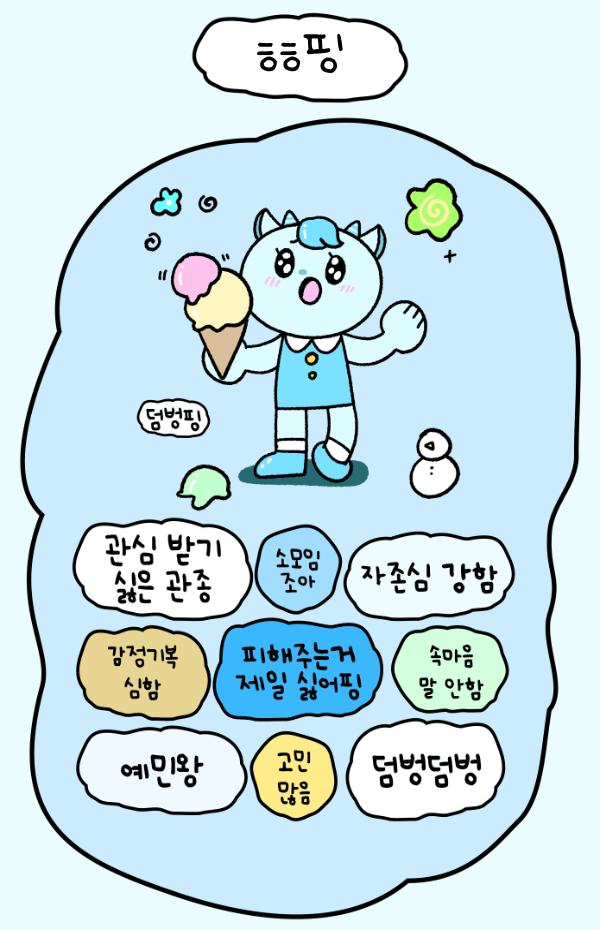 ㅎㅎ핑
덤벙핑
관심 받기
싫은 관종
소모임
조아
자존심 강함
감정기복
심함
피해주는거
제일 싫어핑
속마음
말 안함
예민왕
고민
많음
덤벙덤벙